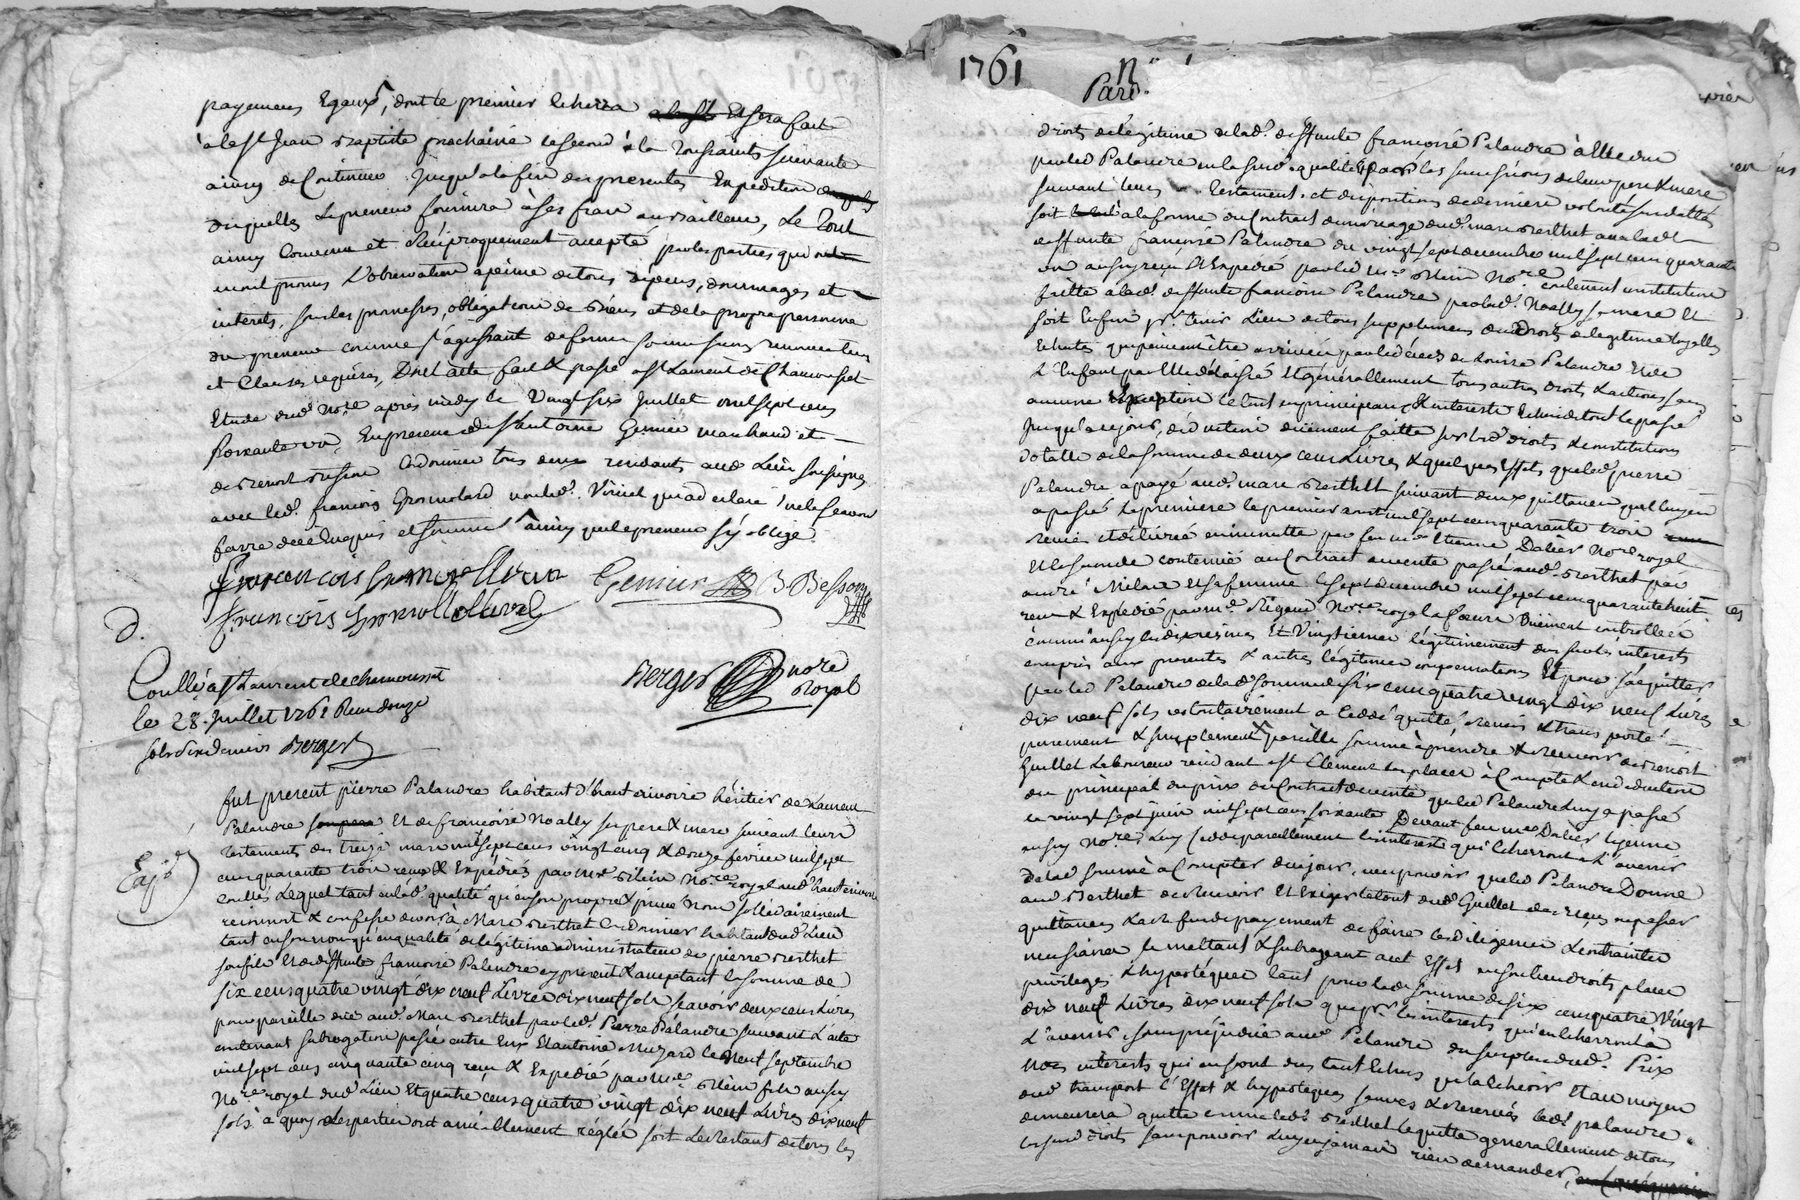 payemens Egaux, dont le premier écherra a la St Et sera fait
a la St Jean Baptiste prochaine le second a la Toussaints suivante
ainsy de Continuer jusqu'a la fin des presentes Expedition
desquelles Le preneur fournira à ses frais au bailleur, Le Tout
ainsy Convenu et Réciproquement accepté par les parties qui ont
promis L'observation a peine de tous dépens, dommages et
interets, sous les promesses, obligations de biens et de la propre personne
du preneur comme s'agissant de ferme soumissions renonciations
et Clauses requises, Dont acte fait & passé a St Laurent de Chamousset
Etude dud. Nore après midy le Vingt six Juillet mil sept cens
soixante un, En presence de St antoine Gemier marchand et
de Benoit Besson Cordonnier tous deux residants aud. Lieu soussignés
avec led. françois Gromolard non led. qui a declaré ne le sçavoir
faire de ce Enquis et sommé ainsy que le preneur s'y oblige
françois
Gemier B. Besson
françois
D.
Berger nore Royal
Coullé a St Laurent de chamousset
le 28. Juillet 1761 Reçu douze
sols six deniers Berger
fut present pierre Palandre habitant d'hauterivoire héritier de Laurent
Palandre son pere Et de francoise Noally ses pere & mere suivant leurs
testaments des treize mars mil sept cens vingt cinq & douze fevrier mil sept
Exp.d
cens quarante trois reçus & Expédiés par me Blein Nore royal aud. hauterivoire
coullés, Lequel tant en lad. qualité qu'en son propre & privé Nom solidairement
reconnoit & confesse devoir à Marc Berthet Cordonnier habitant dud. Lieu
tant en son nom qu'en qualité de legitime administrateur de pierre Berthet
son fils Et de deffunte françoise Palandre cy present & acceptant la somme de
six cens quatre vingt dix neuf Livres dix neuf sols sçavoir deux cens Livres
pour pareille due aud. Marc Berthet par led. Pierre Palandre suivant L'acte
contenant subrogation passé entre Eux Et antoine Muzard le neuf septembre
mil sept cens cinquante cinq reçu & Expedié par me Blein fils aussy
Nore royal dud. Lieu Et quatre cens quatre vingt dix neuf Livres dix neuf
sols à quoy Les parties ont amiablement réglé soit Le Restant de tous les
1761 n
Par.
droits de légitime de lad. deffunte françoise Palandre à Elle due
par led. Palandre en la susd. qualité & par les successions de leurs pere & mere
suivant leurs testaments et dispositions de derniere volonté susdattés
soit a la forme du Contrat de mariage dud. marc Berthet avec lad.
deffunte françoise Palandre du vingt sept decembre mil sept cens quarante
un aussy reçu Et Expedié par led. me Blein Nore contenant institution
faitte à lad. deffunte francoise Palandre par lad. Noally sa mere Et
soit Enfin pr. tenir Lieu de tous supplemens desd. Droits de legitime Loyalles
Echutes qui peuvent être arrivées par le décès de Louise Palandre Et de
L'Enfant par Elle délaissé Et généralement tous autres droits & actions sans
aucune Exception le tout en principeaux & interests Echus de tout le passé
jusqu'a ce jour, déduction duement faitte sur lesd. droits & constitutions
dotalle de la somme de deux cens Livres & quelques Effets que led. pierre
Palandre a payé aud. marc Berthet suivant deux quittances qu'il luy en
a passé La premiere le premier avril mil sept cens quarante trois
reçue et délivrée en minutte par feu me Etienne Dalier Nore royal
Et la seconde contenue au Contrat de vente passé aud. Berthet par
andré Et sa femme Le sept decembre mil sept cens quarante huit
reçu & Expedié par me Rigaud Nore royal duement controllée
comm'aussy les dixiesmes Et vingtiemes légitimement dus sur les interests
compris aux presentes & autres légitimes compensations Et pour s'acquitter
par led. Palandre de lad. somme de six cens quatre vingt dix neuf Livres
dix neuf sols volontairement a ceddé quitté remis & transporté
purement & simplement pareille somme à prendre & recevoir de Benoit
Guillet Laboureur residant a St Clement les places à Compte & en déduction
du principal du prix du Contrat de vente que led. Palandre luy a passé
le vingt sept juin mil sept cens soixante Devant feu me Dalier
aussy Nore Luy cedde pareillement Les interests qui Echerront a L'avenir
de lad. somme à Compter de ce jour, au pouvoir que led. Palandre Donne
aud. Berthet de recevoir Et Exiger le tout dud. Guillet des reçus en passer
quittances & a deffaut de payement de faire les diligences & contraintes
necessaires le mettant & subrogeant a cet Effet en son lieu droits places
privileges & hypotéques tant pour lad. somme de six cens quatre vingt
dix neuf Livres dix neuf sols que pr. les interests qu'en Echerront à
L'avenir, sans préjudice aud. Palandre du surplus dud. Prix
Et des interests qui en sont dus tant Echus qu'a Echeoir Et au moyen
dud. transport L'Effet & hypotéques sauves & reservés led. palandre
demeurera quitte envers led. Berthet Lequitte generallement de tous
lesd. droits sans pouvoir Luy en jamais rien demander,